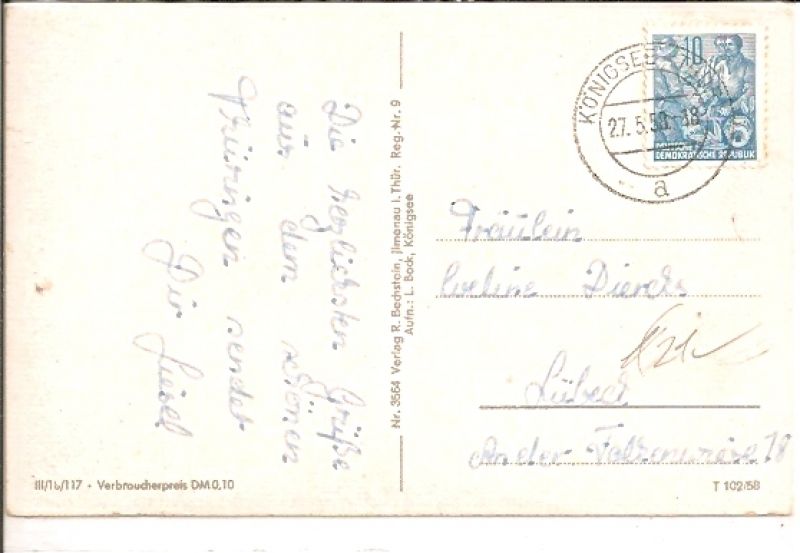 Die herzlichsten Grüße
aus dem schönen
Thüringen sendet
Dir Liesel
Nr. 3564 Verlag R. Bechstein, Jlmenau i. Thür. Reg.-Nr. 9
Aufn.: L. Bock, Königsee
III/16/117 • Verbraucherpreis DM 0,10
KÖNIGSEE
27. 5. -18
a
10
DEMOKRATISCHE REPUBLIK
Fräulein
Eveline Diercks
Lübeck
An der Falkenwiese 18
T 102/58